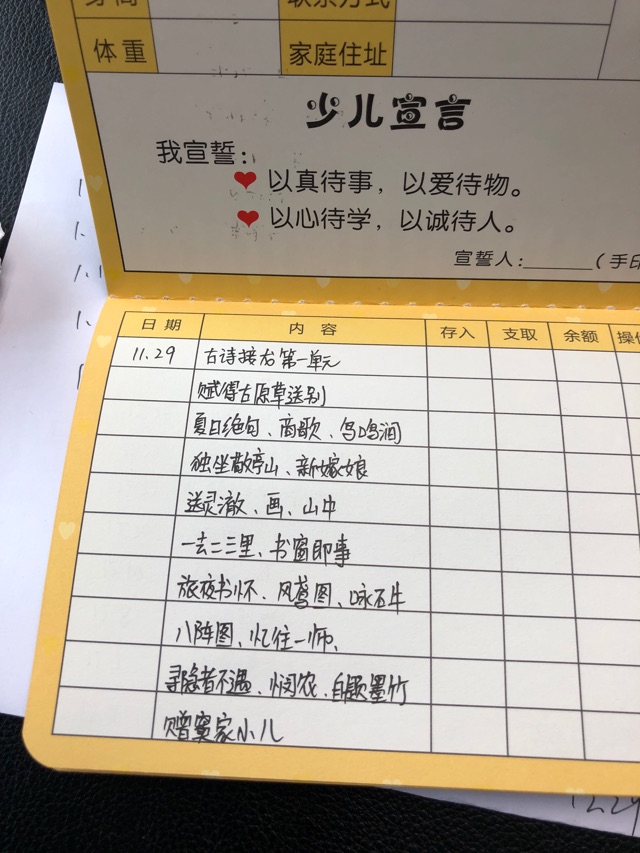 身高
联系方式
体重
家庭住址
少儿宣言
我宣誓：
以真待事，以爱待物。
以心待学，以诚待人。
宣誓人：______（手印
日期 内容 存入 支取 余额 操作
11.29 古诗接龙第一单元
赋得古原草送别
夏日绝句、商歌、鸟鸣涧
独坐敬亭山、新嫁娘
送灵澈、画、山中
一去二三里、书窗即事
旅夜书怀、风鸢图、咏石牛
八阵图、忆住一师、
寻隐者不遇、悯农、自题墨竹
赠窦家小儿